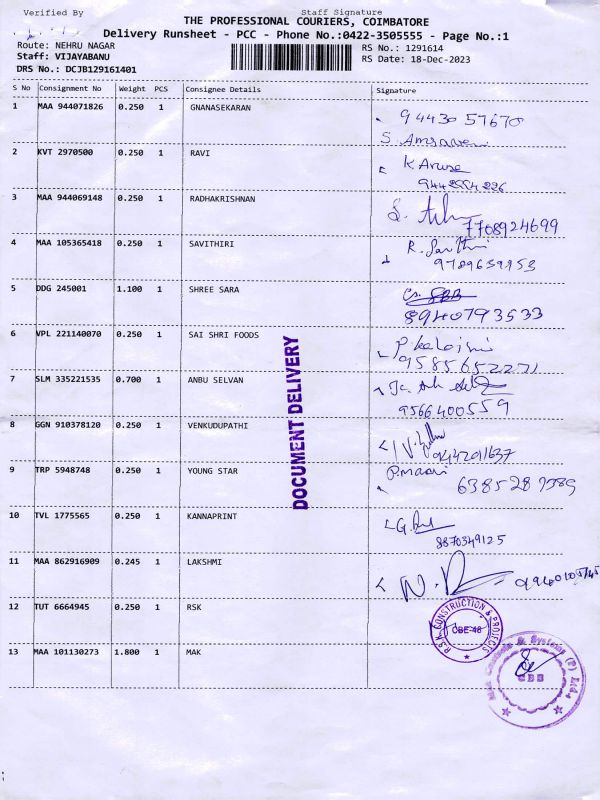 Verified By Staff Signature
THE PROFESSIONAL COURIERS, COIMBATORE
Delivery Runsheet - PCC - Phone No.:0422-3505555 - Page No.:1
Route: NEHRU NAGAR RS No.: 1291614
Staff: VIJAYABANU RS Date: 18-Dec-2023
DRS No.: DCJB129161401
S No Consignment No Weight PCS Consignee Details Signature
1 MAA 944071826 0.250 1 GNANASEKARAN 9443057670
2 KVT 2970500 0.250 1 RAVI
3 MAA 944069148 0.250 1 RADHAKRISHNAN 7708924699
4 MAA 105365418 0.250 1 SAVITHIRI
5 DDG 245001 1.100 1 SHREE SARA 8940793533
6 VPL 221140070 0.250 1 SAI SHRI FOODS
9585652271
7 SLM 335221535 0.700 1 ANBU SELVAN
9566400559
8 GGN 910378120 0.250 1 VENKUDUPATHI
9 TRP 5948748 0.250 1 YOUNG STAR
10 TVL 1775565 0.250 1 KANNAPRINT
8870349125
11 MAA 862916909 0.245 1 LAKSHMI
12 TUT 6664945 0.250 1 RSK
R.S.K CONSTRUCTION & PROJECTS
CBE-48
13 MAA 101130273 1.800 1 MAK
CBE
DOCUMENT DELIVERY